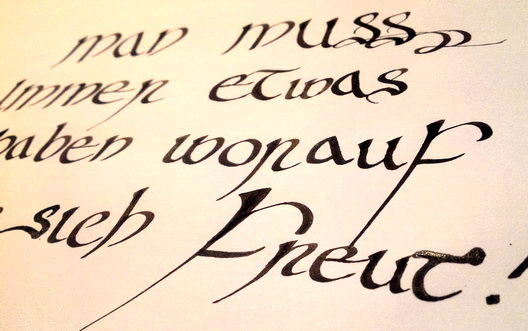 man muss
immer etwas
haben worauf
sich freut!